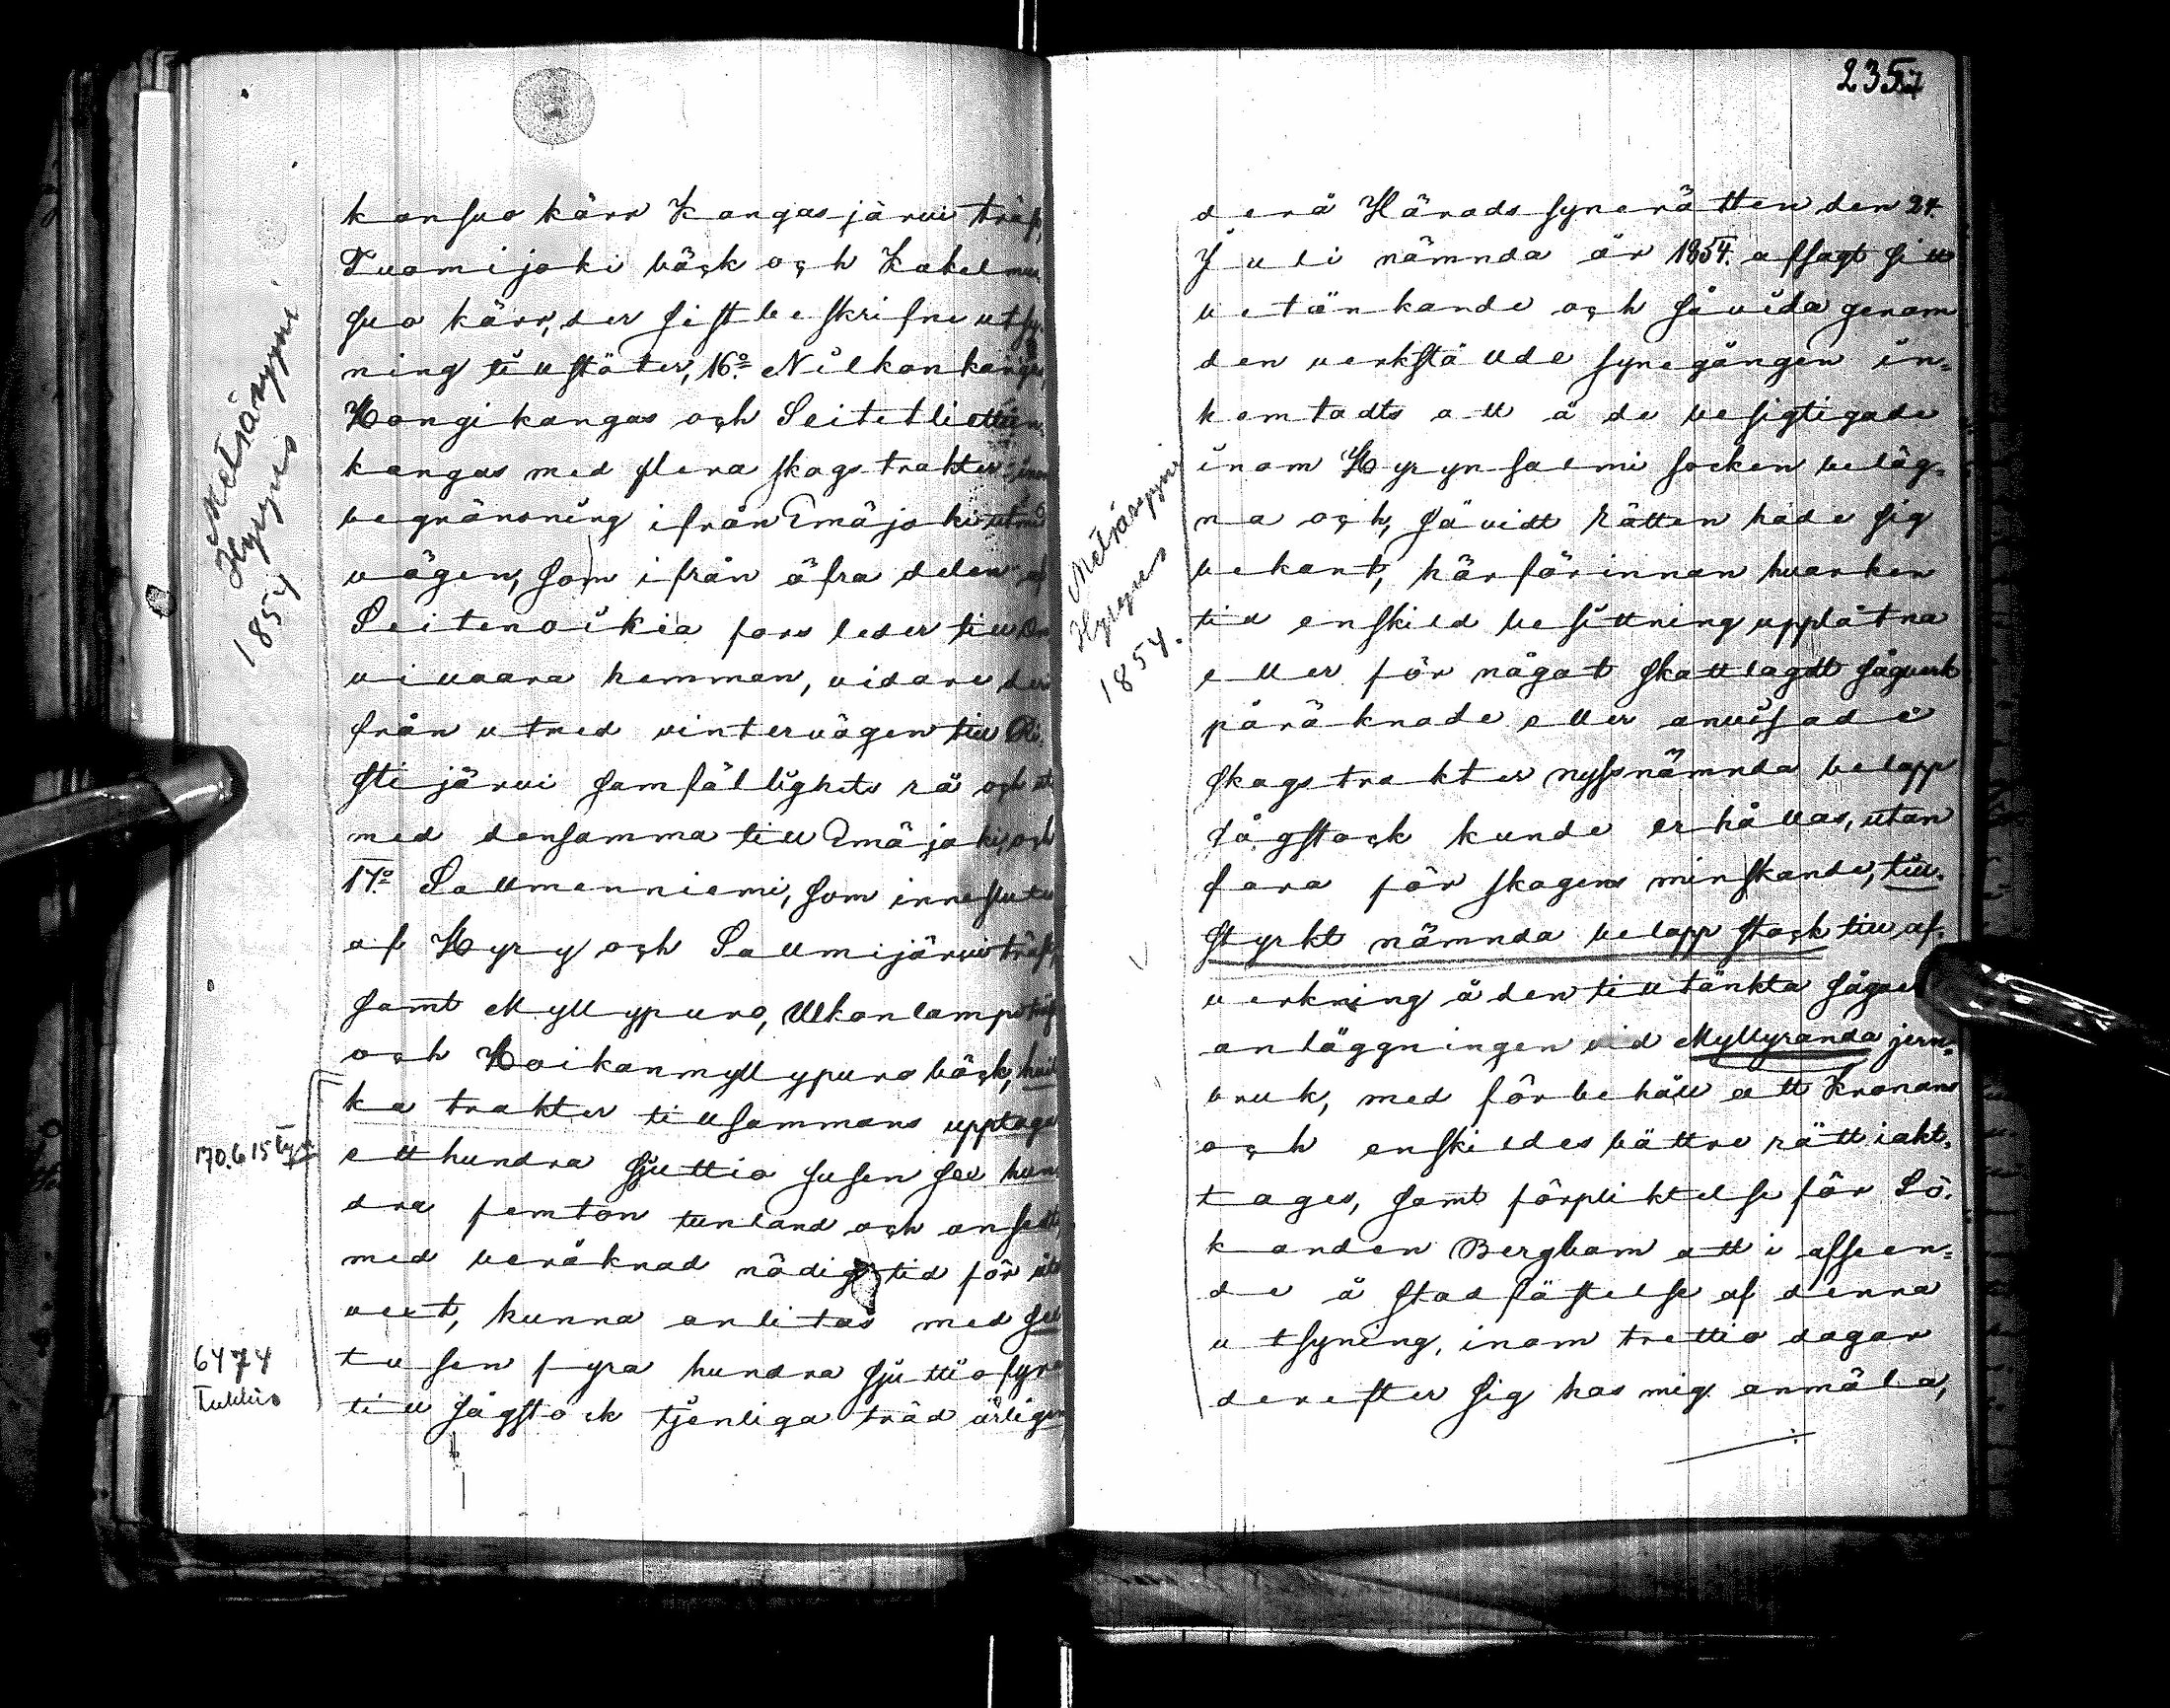 kansuo kärr Kangasjärvi träsk,
Tuomijoki bäck och Kakel
suo kärr, der sist beskrifne utsy-
ning tillstöter, 16:o Nilkonkangas,
Hongikangas och
kangas med flera skogstrakter, inom
begränsning ifrån Emäjoki utmed
vägen, som ifrån öfra delen af
Seitenoikia fors leder till
vivaara hemman, vidare der
från utmed vintervägen till Ri-
stijärvi samfällighets rå och ut
med densamma till Emäjoki, och
17:o Sallmenniemi, som inneslutes
af Hyry och Sallmijärvi träsk,
samt Myllypuro, Ulkonlampi träsk
och Hoikanmyllypuro bäck, hvil
ka trakter tillsammans upptaga
etthundra sjuttio tusen sex hun
dra femton tunland och ansedts,
med beräknad nödig tid för åter
vext, kunna anlitas med sex
tusen fyra hundra sjuttiofyra
till sågstock tjenliga träd årligen
Metsäsyyni
Hyryns
1854
170.615 tyn
6474
Tukkia
2357
derå Häradssynerätten den 24.
Juli nämnda år 1854. afsagt sitt
betänkande och såvida genom
den verkstälde synegången in-
hemtadts att å de besigtigade
inom Hyrynsalmi socken beläg-
na och, såvidt Rätten hade sig
bekant, härförinnan hvarken
till enskild besittning upplåtna
eller för något skattlagdt sågverk
påräknade eller anvisade
skogstrakter nyssnämnda belopp
sågstock kunde erhållas, utan
fara för skogens minskande, till-
styrkt nämnda belopp stock till af-
verkning å den tilltänkta sågverks
anläggningen vid Myllyranda jern-
bruk, med förbehåll att Kronans
och enskildes bättre rätt iakt-
tages, samt förpliktelse för Sö-
kanden Bergbom att i afseen-
de å stadfästelse af denna
utsyning, inom trettio dagar
derefter sig hos mig anmäla,
Metsäsyyni
Hyryns
1854.